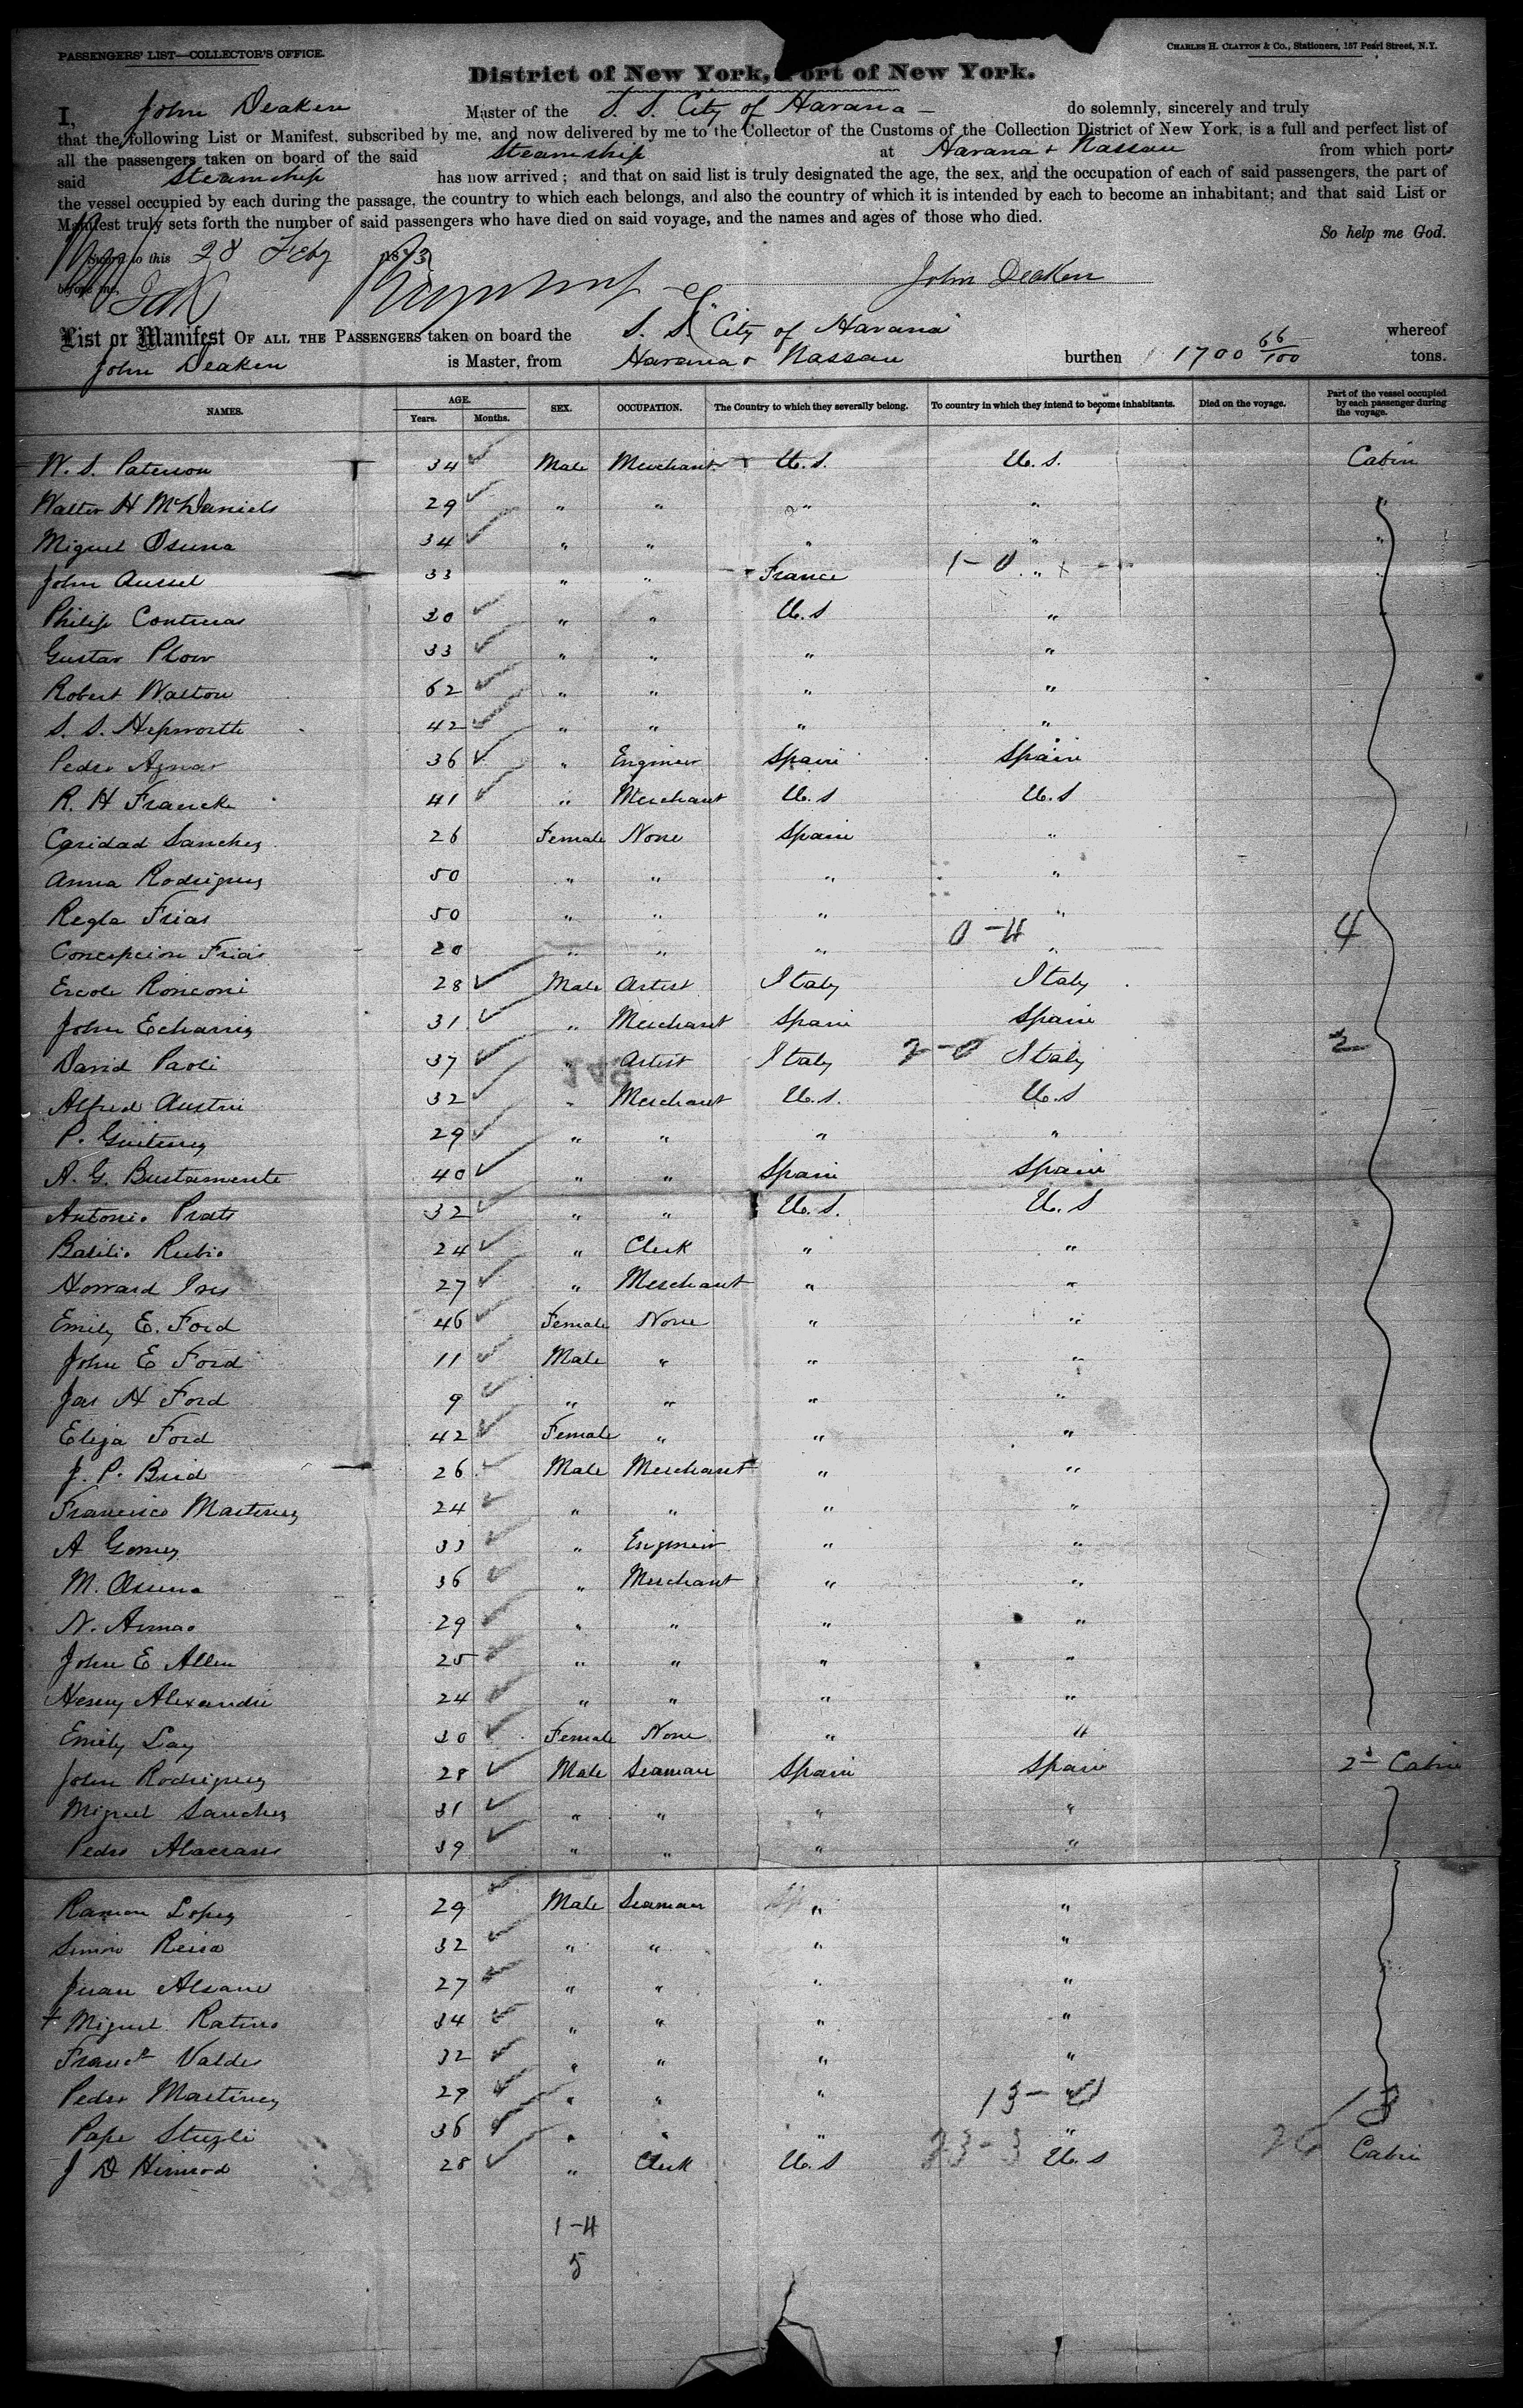 PASSENGERS' LIST—COLLECTOR'S OFFICE.
CHARLES H. CLAYTON & Co., Stationers, 157 Pearl Street, N.Y.
District of New York, Port of New York.
I, John Deaken Master of the S. S. City of Havana do solemnly, sincerely and truly
that the following List or Manifest, subscribed by me, and now delivered by me to the Collector of the Customs of the Collection District of New York, is a full and perfect list of
all the passengers taken on board of the said Steamship at Havana & Nassau from which ports
said Steamship has now arrived; and that on said list is truly designated the age, the sex, and the occupation of each of said passengers, the part of
the vessel occupied by each during the passage, the country to which each belongs, and also the country of which it is intended by each to become an inhabitant; and that said List or
Manifest truly sets forth the number of said passengers who have died on said voyage, and the names and ages of those who died.
So help me God.
Sworn to this 28 Feby 1873
before me, John Deaken
List or Manifest OF ALL THE PASSENGERS taken on board the S. S. "City of Havana" whereof
John Deaken is Master, from Havana & Nassau burthen 1700 66/100 tons.
NAMES. AGE. Years. Months. SEX. OCCUPATION. The Country to which they severally belong. To country in which they intend to become inhabitants. Died on the voyage. Part of the vessel occupied by each passenger during the voyage.
W. S. Paterson 34 Male Merchant U. S. U. S. Cabin
Walter H McDaniels 29 " " " " "
Miguel Osuna 34 " " " " "
John Aussel 33 " " France 1-0 "
Philip Contreras 30 " " U. S "
Gustav Plow 33 " " " "
Robert Walton 62 " " " "
S. S. Hepworth 42 " " " "
Pedro Aznar 36 " Engineer Spain Spain
R. H Francke 41 " Merchant U. S U. S
Caridad Sanchez 26 Female None Spain "
Anna Rodriguez 50 " " " "
Regla Frias 50 " " " "
Concepcion Frias 20 " " " 0-4 " 4
Ercole Ronconi 28 Male Artist Italy Italy
John Echarriz 31 " Merchant Spain Spain
David Paoli 37 " Artist Italy 2-0 Italy 2
Alfred Austin 32 " Merchant U. S. U. S
P. Guiterez 29 " " " "
A. G. Bustamente 40 " " Spain Spain
Antonio Prats 32 " " U. S. U. S
Basilio Rubio 24 " Clerk " "
Howard Ives 27 " Merchant " "
Emily E. Ford 46 Female None " "
John E Ford 11 Male " " "
Jas H Ford 9 " " " "
Eliza Ford 42 Female " " "
J. P. Brid 26 Male Merchant " "
Francisco Martinez 24 " " " "
A Gomez 33 " Engineer " "
M. Osuna 36 " Merchant " "
N. Armao 29 " " " "
John E Allen 25 " " " "
Henry Alexandre 24 " " " "
Emily Lay 30 Female None " "
John Rodriguez 28 Male Seaman Spain Spain 2d Cabin
Miguel Sanchez 31 " " " "
Pedro 39 " " " "
Ramon Lopez 29 Male Seaman " "
Reira 32 " " " "
Juan Alsane 27 " " " "
+ Miguel Ratino 34 " " " "
Valdes 32 " " " "
Pedro Martinez 29 " " " 13-0 " 13
Pape 36 " " " "
J D Himrod 28 " Clerk U. S 23-3 U. S 26 Cabin
1-4
5